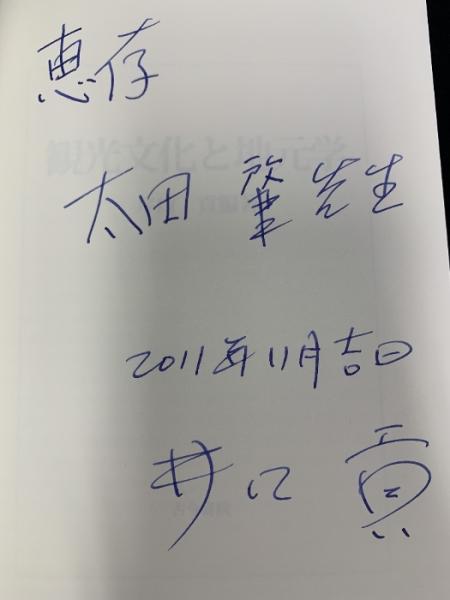 恵存
観光文化と地元学
太田 肇 先生
2011年11月吉日
井口 貢